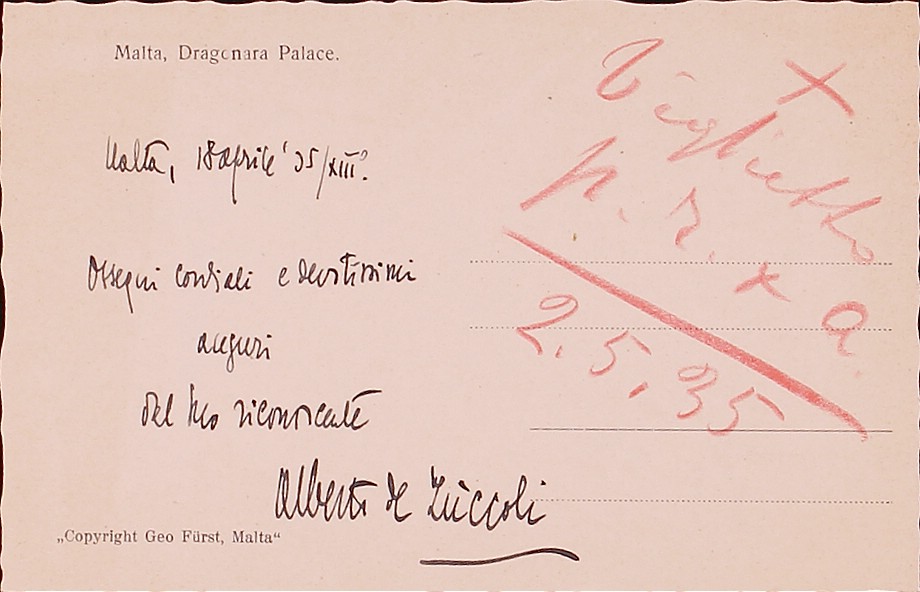 Malta, Dragonara Palace.
Malta, 18 aprile '35/XIII?
Ossequi cordiali e devotissimi
auguri
del Suo riconoscente
Alberto de Zùccoli
„Copyright Geo Fürst, Malta“
x
Biglietto
p. r. x a.
2.5.35